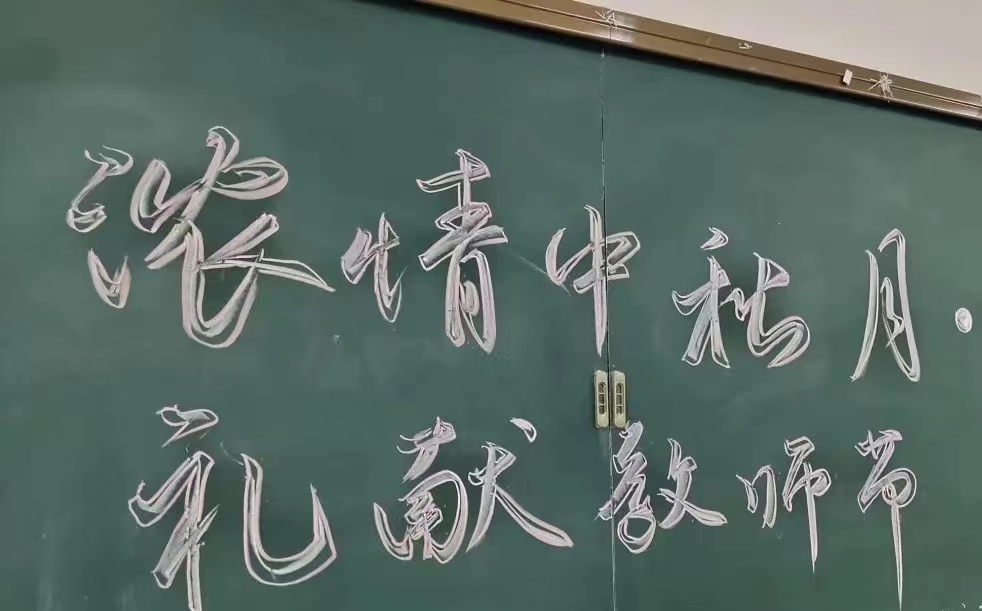 浓情中秋月.
礼献教师节